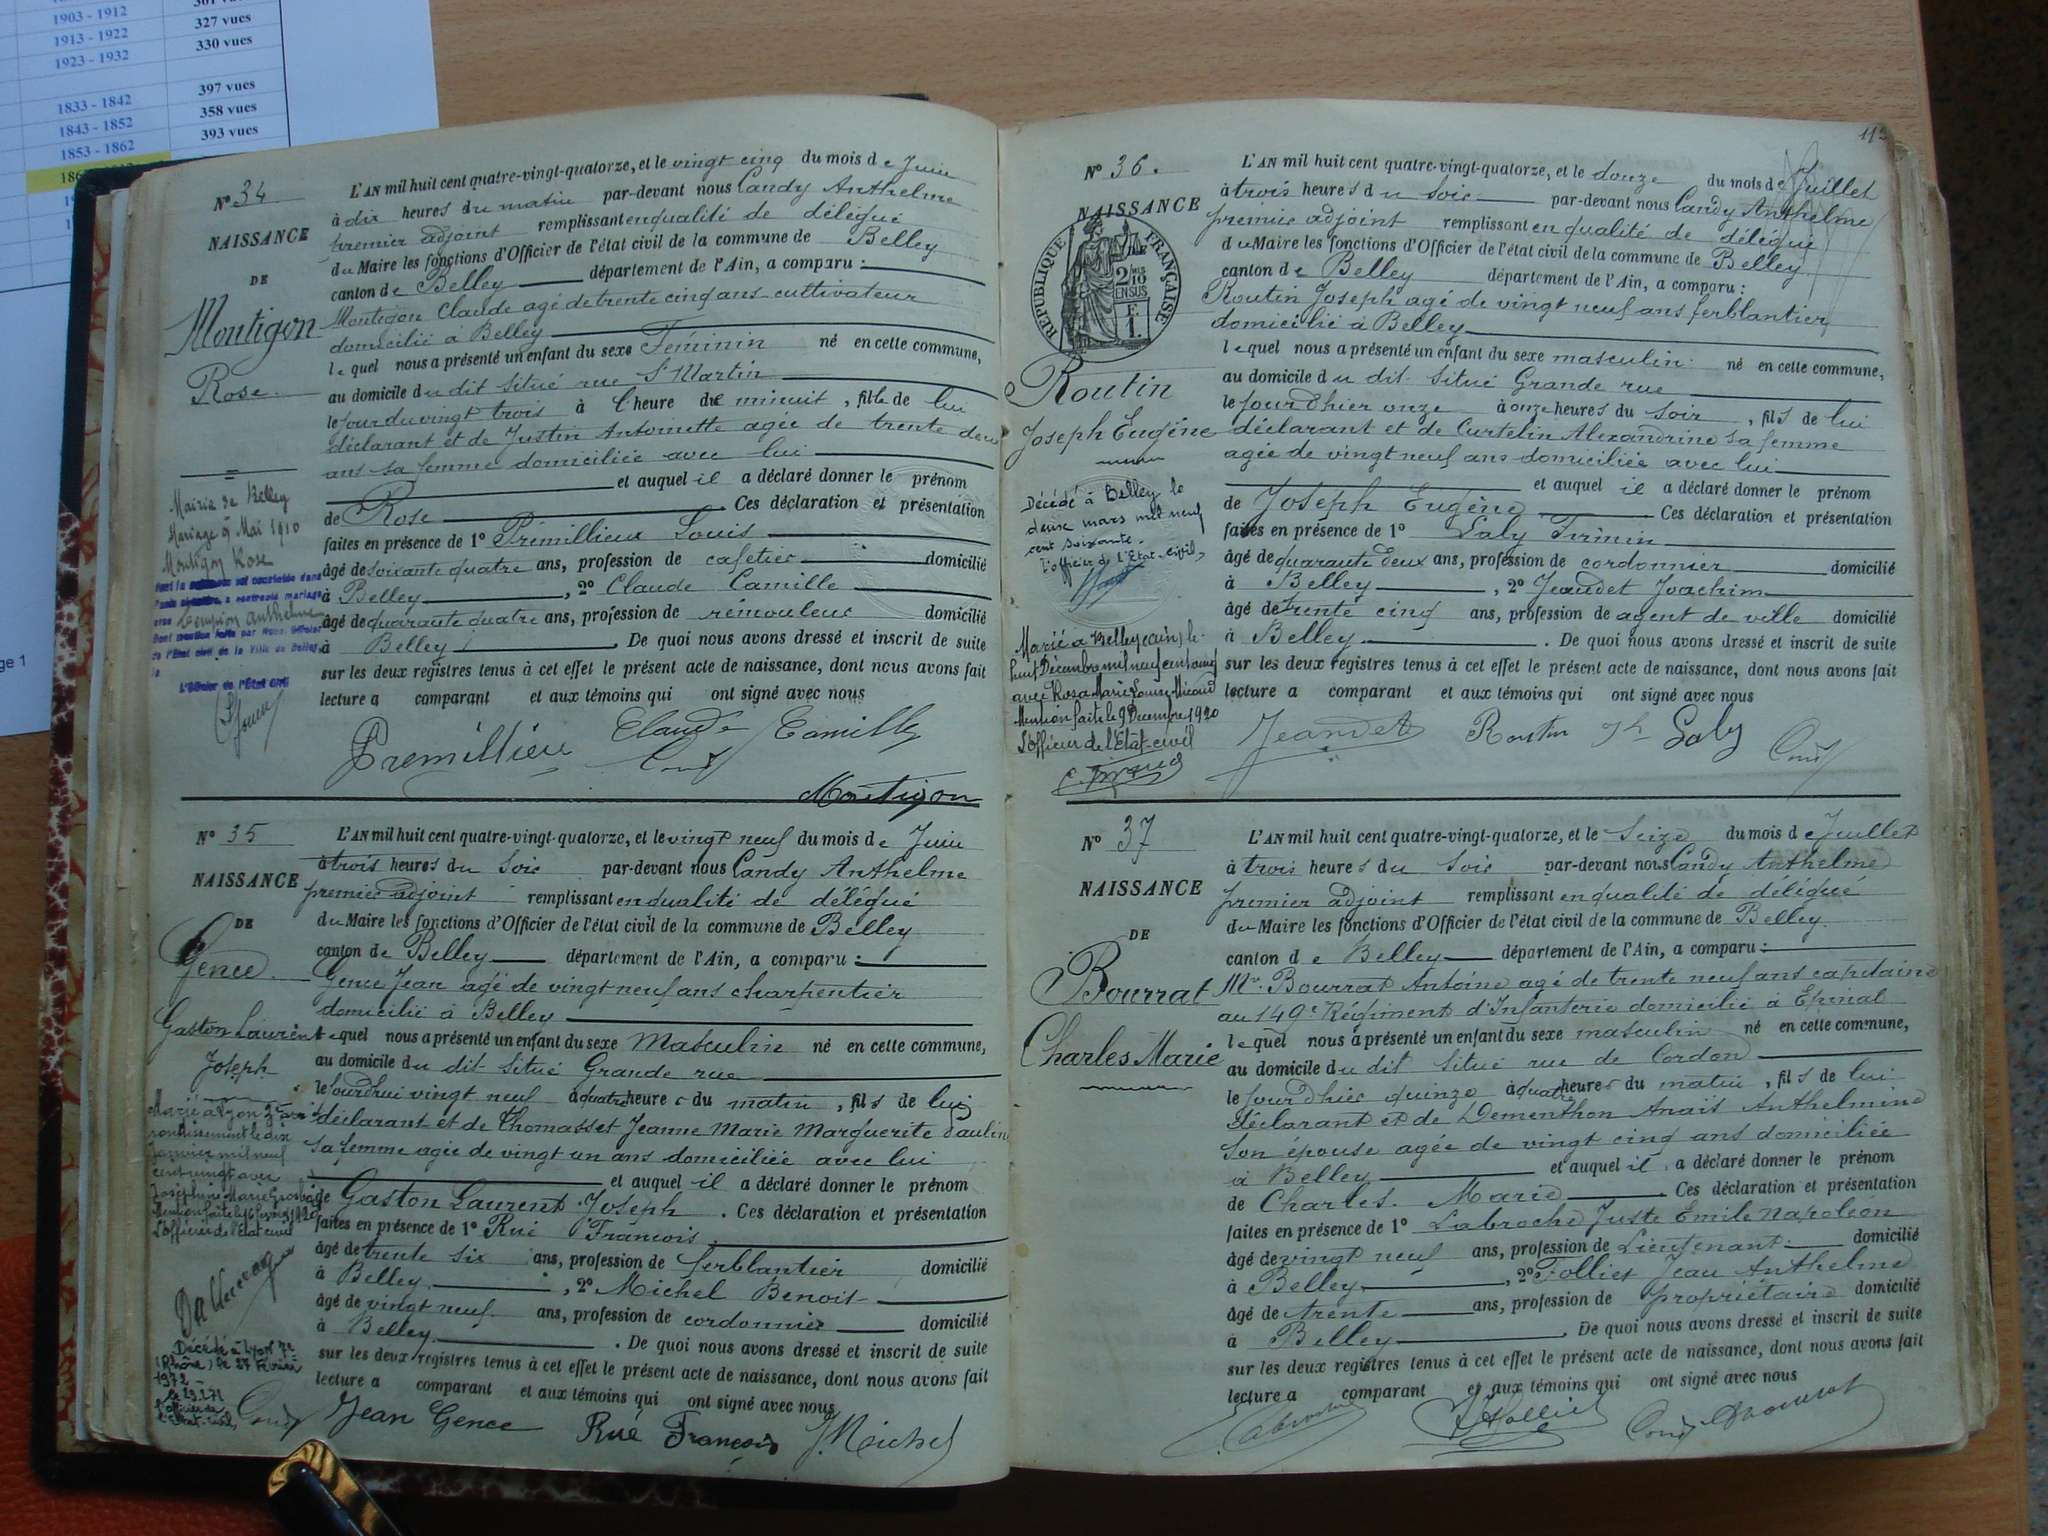 1903 - 1912
327 vues
1913 - 1922
330 vues
1923 - 1932
397 vues
1833 - 1842
358 vues
1843 - 1852
393 vues
1853 - 1862
ge 1
N° 34
NAISSANCE
DE
Montigon
Rose
Mairie de Belley
Mariage 9 Mai 1910
Montigon Rose
L'Officier de l'État Civil
L'AN mil huit cent quatre-vingt-quatorze, et le vingt cinq du mois de Juin
à dix heures du matin par-devant nous Candy Anthelme
premier adjoint remplissant en qualité de délégué
du Maire les fonctions d'Officier de l'état civil de la commune de Belley
canton de Belley département de l'Ain, a comparu :
Montigon Claude agé de trente cinq ans cultivateur
domicilié à Belley
lequel nous a présenté un enfant du sexe Féminin né en cette commune,
au domicile du dit situé rue St Martin
le jour du vingt trois à l'heure de minuit, fille de lui
déclarant et de Justin Antoinette agée de trente deux
ans sa femme domiciliée avec lui
et auquel il a déclaré donner le prénom
de Rose Ces déclaration et présentation
faites en présence de 1° Prémillieu Louis
âgé de soixante quatre ans, profession de cafetier domicilié
à Belley, 2° Claude Camille
âgé de quarante quatre ans, profession de rémouleur domicilié
à Belley. De quoi nous avons dressé et inscrit de suite
sur les deux registres tenus à cet effet le présent acte de naissance, dont nous avons fait
lecture a comparant et aux témoins qui ont signé avec nous
Premillieu Claude Camille
Montigon
N° 35
NAISSANCE
DE
Gence
Gaston Laurent
Joseph
Marié à Lyon 3e ar
rondissement le dix
Janvier mil neuf
cent vingt avec
Joséphine Marie
L'officier de l'état civil
Décédé à Lyon 7e
(Rhône) le 27 Février
1972
L'AN mil huit cent quatre-vingt-quatorze, et le vingt neuf du mois de Juin
à trois heures du soir par-devant nous Candy Anthelme
premier adjoint remplissant en qualité de délégué
du Maire les fonctions d'Officier de l'état civil de la commune de Belley
canton de Belley département de l'Ain, a comparu :
Gence Jean agé de vingt neuf ans charpentier
domicilié à Belley
lequel nous a présenté un enfant du sexe Masculin né en cette commune,
au domicile du dit situé Grande rue
le jourd'hui vingt neuf à quatre heures du matin, fils de lui
déclarant et de Thomasset Jeanne Marie Marguerite Pauline
sa femme agée de vingt un ans domiciliée avec lui
et auquel il a déclaré donner le prénom
de Gaston Laurent Joseph. Ces déclaration et présentation
faites en présence de 1° Rué François
âgé de trente six ans, profession de ferblantier domicilié
à Belley, 2° Michel Benoit
âgé de vingt neuf ans, profession de cordonnier domicilié
à Belley. De quoi nous avons dressé et inscrit de suite
sur les deux registres tenus à cet effet le présent acte de naissance, dont nous avons fait
lecture a comparant et aux témoins qui ont signé avec nous
Jean Gence Rué François J. Michel
N° 36.
NAISSANCE
RÉPUBLIQUE FRANÇAISE
EN SUS
Routin
Joseph Eugène
Décédé à Belley le
douze mars mil neuf
cent soixante.
l'officier de l'Etat-civil,
Marié à Belley (Ain), le
huit Décembre mil neuf cent vingt
avec Rosa Marie Louise Micoud
Mention faite le 9 Decembre 1920
L'officier de l'Etat-civil
L'AN mil huit cent quatre-vingt-quatorze, et le douze du mois de Juillet
à trois heures du soir par-devant nous Candy Anthelme
premier adjoint remplissant en qualité de délégué
du Maire les fonctions d'Officier de l'état civil de la commune de Belley
canton de Belley département de l'Ain, a comparu :
Routin Joseph agé de vingt neuf ans ferblantier
domicilié à Belley
lequel nous a présenté un enfant du sexe masculin né en cette commune,
au domicile du dit situé Grande rue
le jour d'hier onze à onze heures du soir, fils de lui
déclarant et de Curtelin Alexandrine sa femme
agée de vingt neuf ans domiciliée avec lui
et auquel il a déclaré donner le prénom
de Joseph Eugène Ces déclaration et présentation
faites en présence de 1° Laly Firmin
âgé de quarante deux ans, profession de cordonnier domicilié
à Belley, 2° Jeaudet Joachim
âgé de trente cinq ans, profession de agent de ville domicilié
à Belley. De quoi nous avons dressé et inscrit de suite
sur les deux registres tenus à cet effet le présent acte de naissance, dont nous avons fait
lecture a comparant et aux témoins qui ont signé avec nous
Jeandet Routin Jh Laly
N° 37
NAISSANCE
DE
Bourrat
Charles Marie
L'AN mil huit cent quatre-vingt-quatorze, et le Seize du mois de Juillet
à trois heures du soir par-devant nous Candy Anthelme
premier adjoint remplissant en qualité de délégué
du Maire les fonctions d'Officier de l'état civil de la commune de Belley
canton de Belley département de l'Ain, a comparu :
Mr. Bourrat Antoine agé de trente neuf ans capitaine
au 149e Régiment d'Infanterie domicilié à Epinal
lequel nous a présenté un enfant du sexe masculin né en cette commune,
au domicile du dit situé rue de Cordon
le jour d'hier quinze à quatre heures du matin, fils de lui
déclarant et de Dementhon Anaïs Anthelmine
son épouse agée de vingt cinq ans domiciliée
à Belley et auquel il a déclaré donner le prénom
de Charles Marie Ces déclaration et présentation
faites en présence de 1° Labroche Juste Emile Napoléon
âgé de vingt neuf ans, profession de Lieutenant domicilié
à Belley, 2° Folliet Jean Anthelme
âgé de trente ans, profession de propriétaire domicilié
à Belley. De quoi nous avons dressé et inscrit de suite
sur les deux registres tenus à cet effet le présent acte de naissance, dont nous avons fait
lecture a comparant et aux témoins qui ont signé avec nous